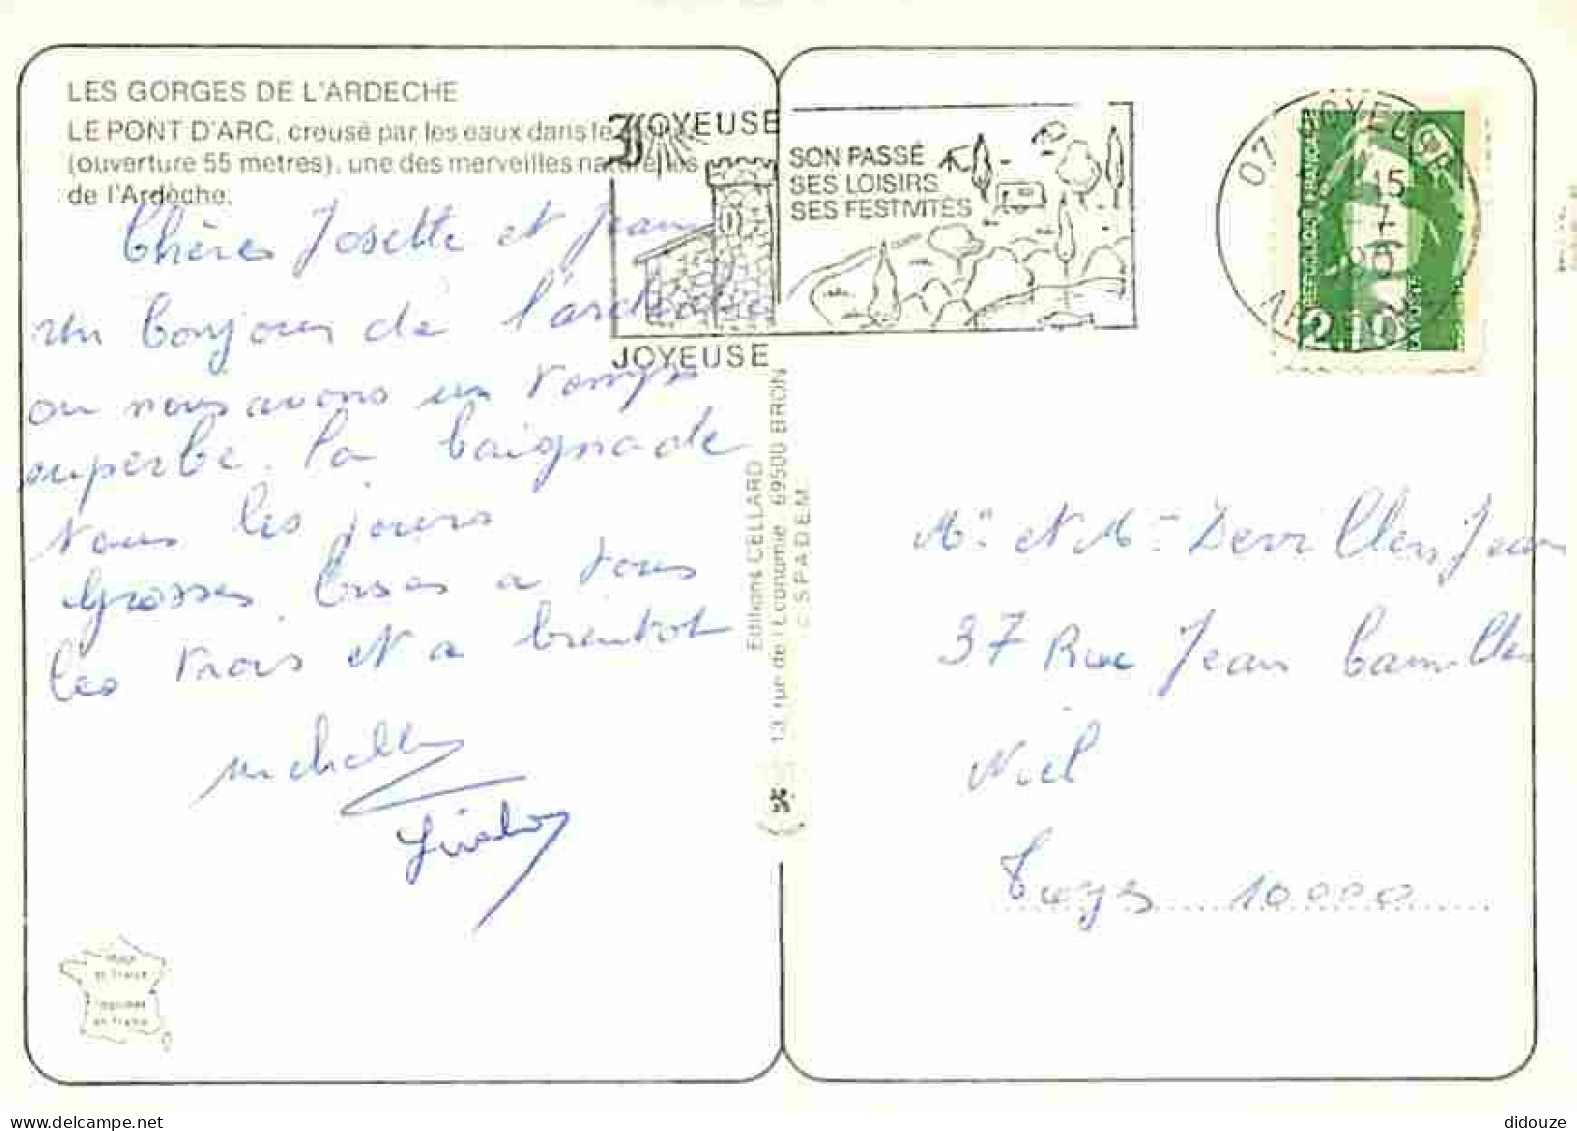 LES GORGES DE L'ARDECHE
LE PONT D'ARC, creusé par les eaux dans le
(ouverture 55 metres), une des merveilles naturelles
de l'Ardèche.
Chères Josette et Jean
un bonjour de l'ardeche
ou nous avons un temps
superbe. la baignade
tous les jours
grosses bises a tous
les trois et a bientot
JOYEUSE
SON PASSÉ
SES LOISIRS
SES FESTIVITÉS
JOYEUSE
07 JOYEUSE
15
7
90
2,10
LA POSTE
Editions CELLARD
13, rue de l'Economie 69500 BRON
© S.P.A.D.E.M.
Mr et Mme Devilliers Jean
37 Rue Jean Camille
Niel
Troyes 10000
Made
in France
Imprimé
en France
delcampe.net
didouze